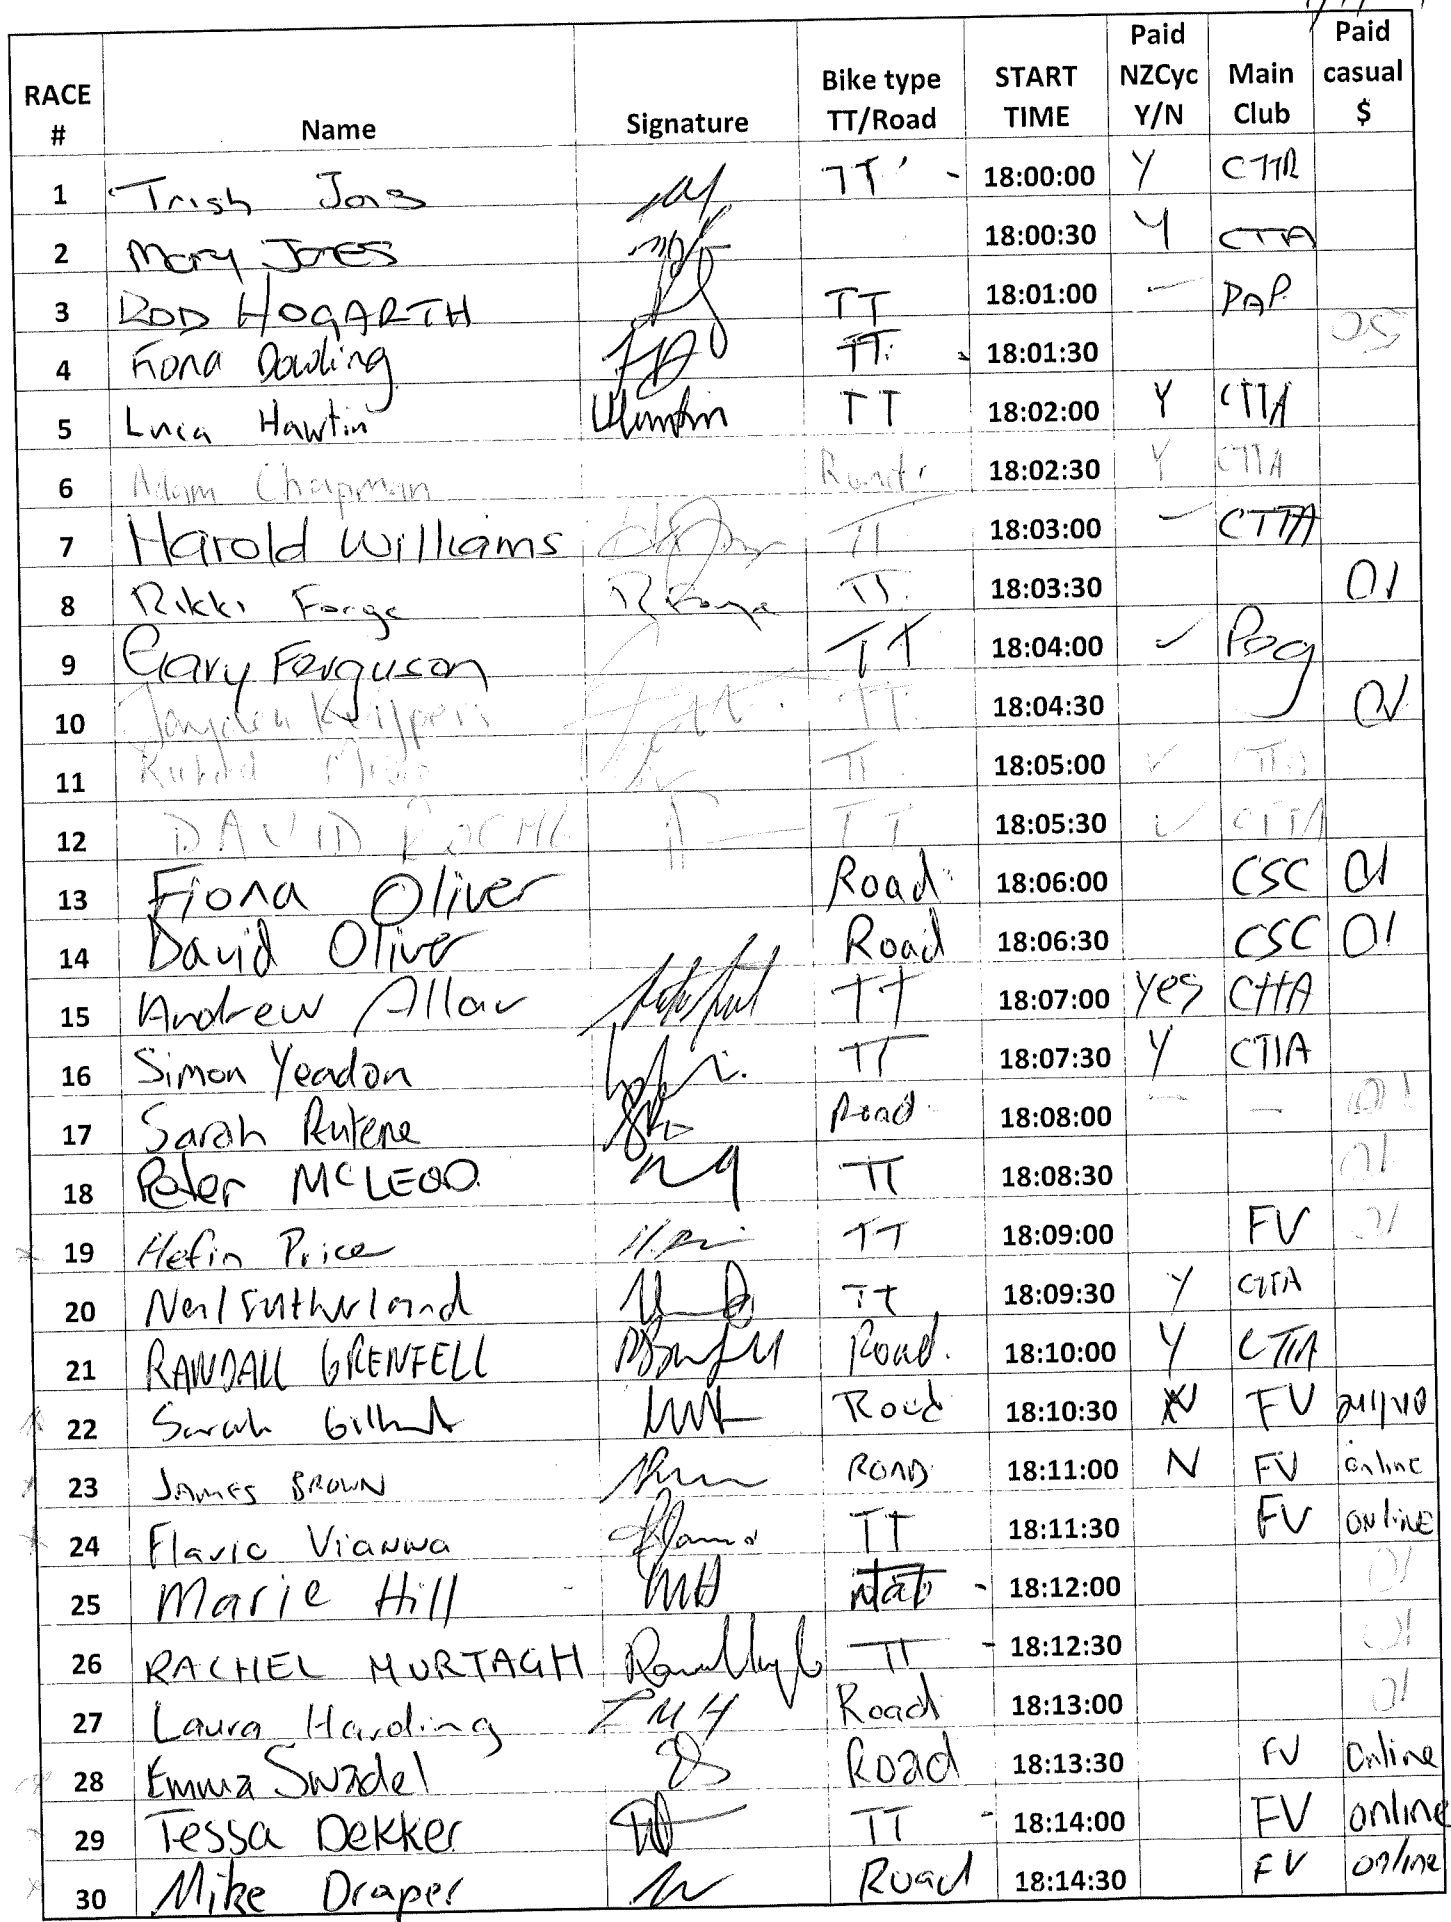 RACE # Name Signature Bike type TT/Road START TIME Paid NZCyc Y/N Main Club Paid casual $
1 Trish TT 18:00:00 Y CTTA
2 Mary Jones 18:00:30 Y CTTA
3 ROD HOGARTH TT 18:01:00 - PAP
4 Fiona Dowling TT 18:01:30
5 Luca Hawtin TT 18:02:00 Y CTTA
6 Adam Chapman Road 18:02:30 Y CTTA
7 Harold Williams TT 18:03:00 CTTA
8 Rikki Forge TT 18:03:30 Ol
9 Gary Ferguson TT 18:04:00 ✓
10 Jayden Kuijpers TT 18:04:30 Ol
11 TT 18:05:00 ✓ CTTA
12 DAVID ROCHE TT 18:05:30 ✓ CTTA
13 Fiona Oliver Road 18:06:00 CSC Ol
14 David Oliver Road 18:06:30 CSC Ol
15 Andrew Allan TT 18:07:00 Yes CTTA
16 Simon Yeadon TT 18:07:30 Y CTTA
17 Sarah Rutene Road 18:08:00 - - Ol
18 Peter MCLEOD TT 18:08:30 Ol
19 Hefin Price TT 18:09:00 FV Ol
20 Neil Sutherland TT 18:09:30 Y CTTA
21 RANDALL GRENFELL Road. 18:10:00 Y CTTA
22 Sarah Road 18:10:30 N FV
23 JAMES BROWN ROAD 18:11:00 N FV online
24 Flavio Vianna TT 18:11:30 FV ONLINE
25 Marie Hill 18:12:00 Ol
26 RACHEL MURTAGH TT 18:12:30 Ol
27 Laura Harding LMH Road 18:13:00 Ol
28 Emma Swadel Road 18:13:30 FV Online
29 Tessa Dekker TT 18:14:00 FV online
30 Mike Draper Road 18:14:30 FV online